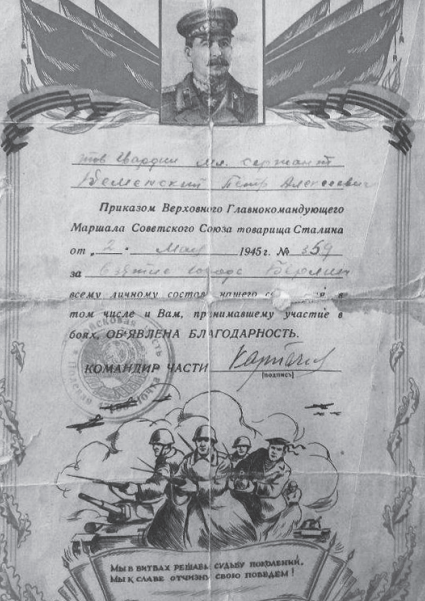 тов Гвардии мл. сержант
Петр Алексеевич
Приказом Верховного Главнокомандующего
Маршала Советского Союза товарища Сталина
от „2" Мая 1945 г. № 359
за взятие города Берлин
всему личному составу нашего в
том числе и Вам, принимавшему участие в
боях, ОБ'ЯВЛЕНА БЛАГОДАРНОСТЬ.
КОМАНДИР ЧАСТИ
[подпись]
МЫ В БИТВАХ РЕШАЕМ СУДЬБУ ПОКОЛЕНИЙ,
МЫ К СЛАВЕ ОТЧИЗНУ СВОЮ ПОВЕДЕМ!